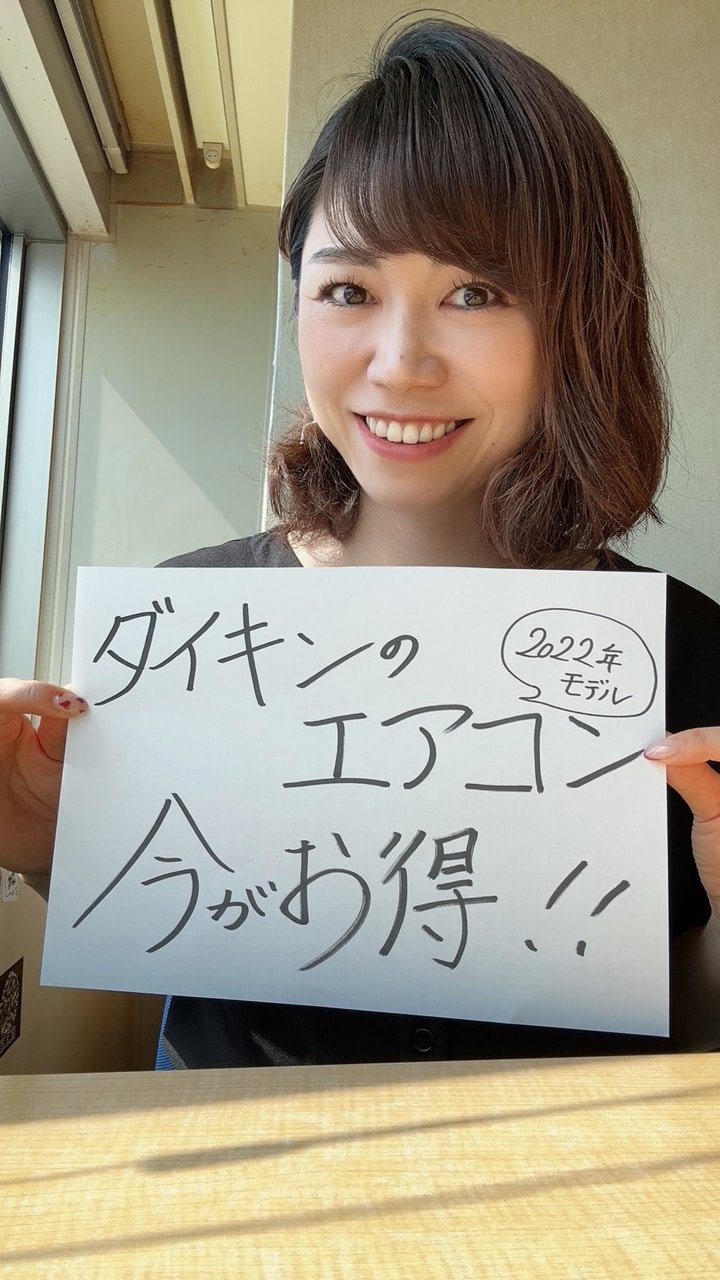 ダイキンの
2022年
モデル
エアコン
今がお得!!